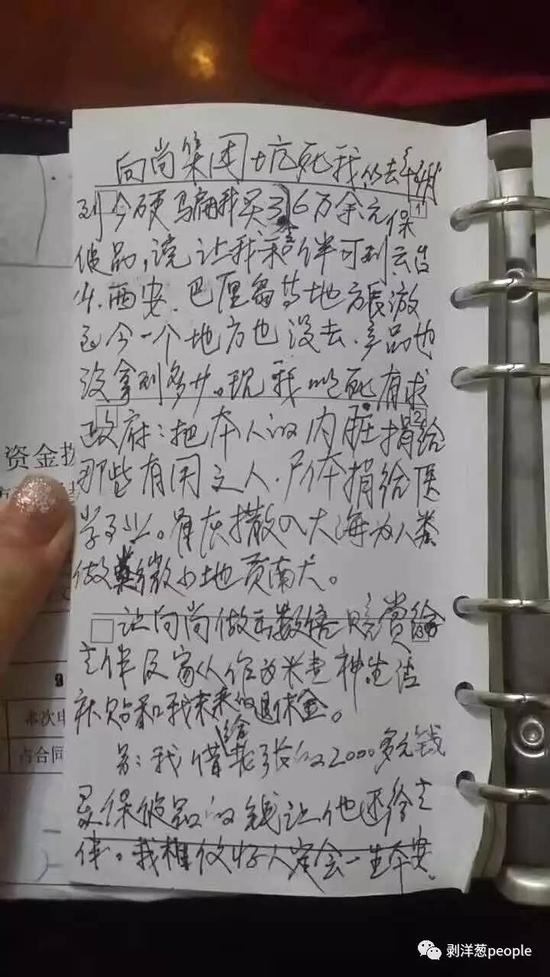 向尚集团坑死我从去年
到今硬骗我买了6万余元保
健品,说让我和老伴可到云台
山、西安、巴厘岛等地方旅游
至今一个地方也没去,产品也
没拿到多少。现我以死有求
政府:把本人的内脏捐给
那些有用之人,尸体捐给医
学专业。骨灰撒入大海为人类
做微小地贡献。
让向尚做出数倍赔赏给
老伴及家人作为精神生活
补贴和我未来的退休金。
另:我借给张的2000多元钱
买保健品的钱让他还给老
伴。我相信好人定会一生平安。
资金
本次
占合同
剥洋葱people